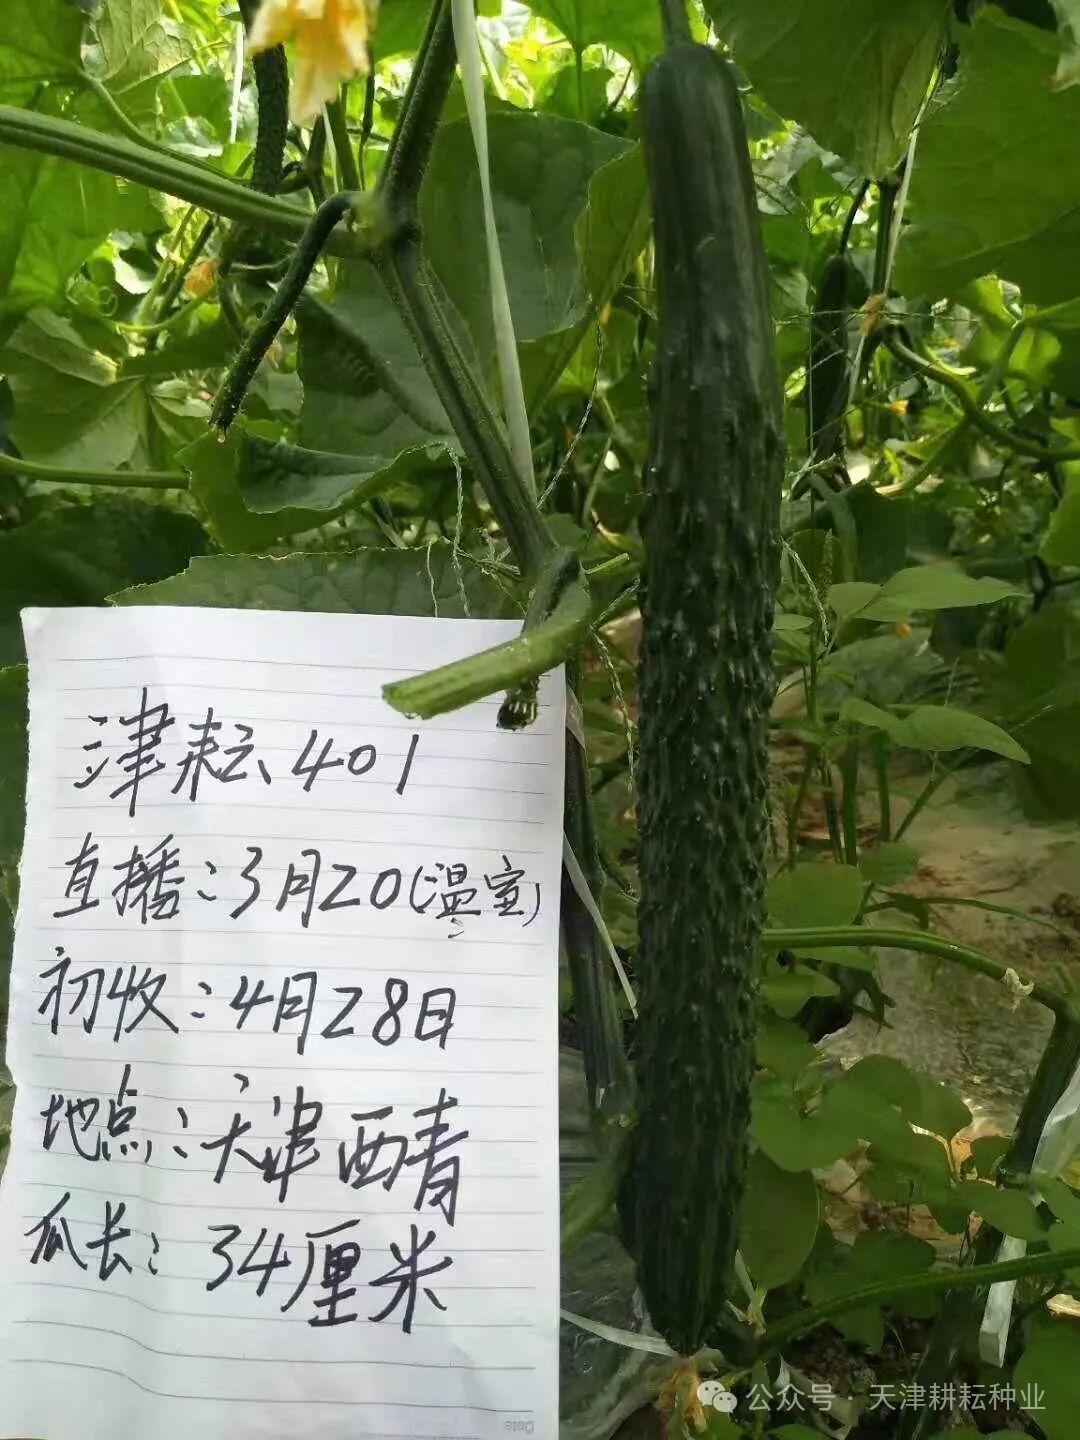 津耘401
直播：3月20(温室)
初收：4月28日
地点：天津西青
瓜长：34厘米
Date
公众号·天津耕耘种业